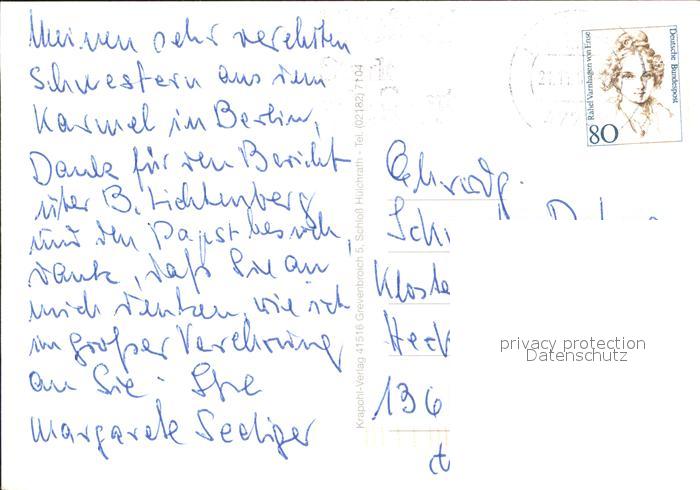 Meinen sehr verehrten
Schwestern aus dem
Karmel in Berlin,
Dank für den Bericht
über B. Lichtenberg
und den Papstbesuch,
dank, daß Sie an
mich denken, wie ich
in großer Verehrung
an Sie. Ihre
Margarete Seeliger
Krapohl-Verlag 41516 Grevenbroich 5, Schloß Hülchrath - Tel. (02182) 7104
Rahel Varnhagen von Ense
Deutsche Bundespost
80
Ehrwdg.
Kloste
Heck
136
privacy protection
Datenschutz